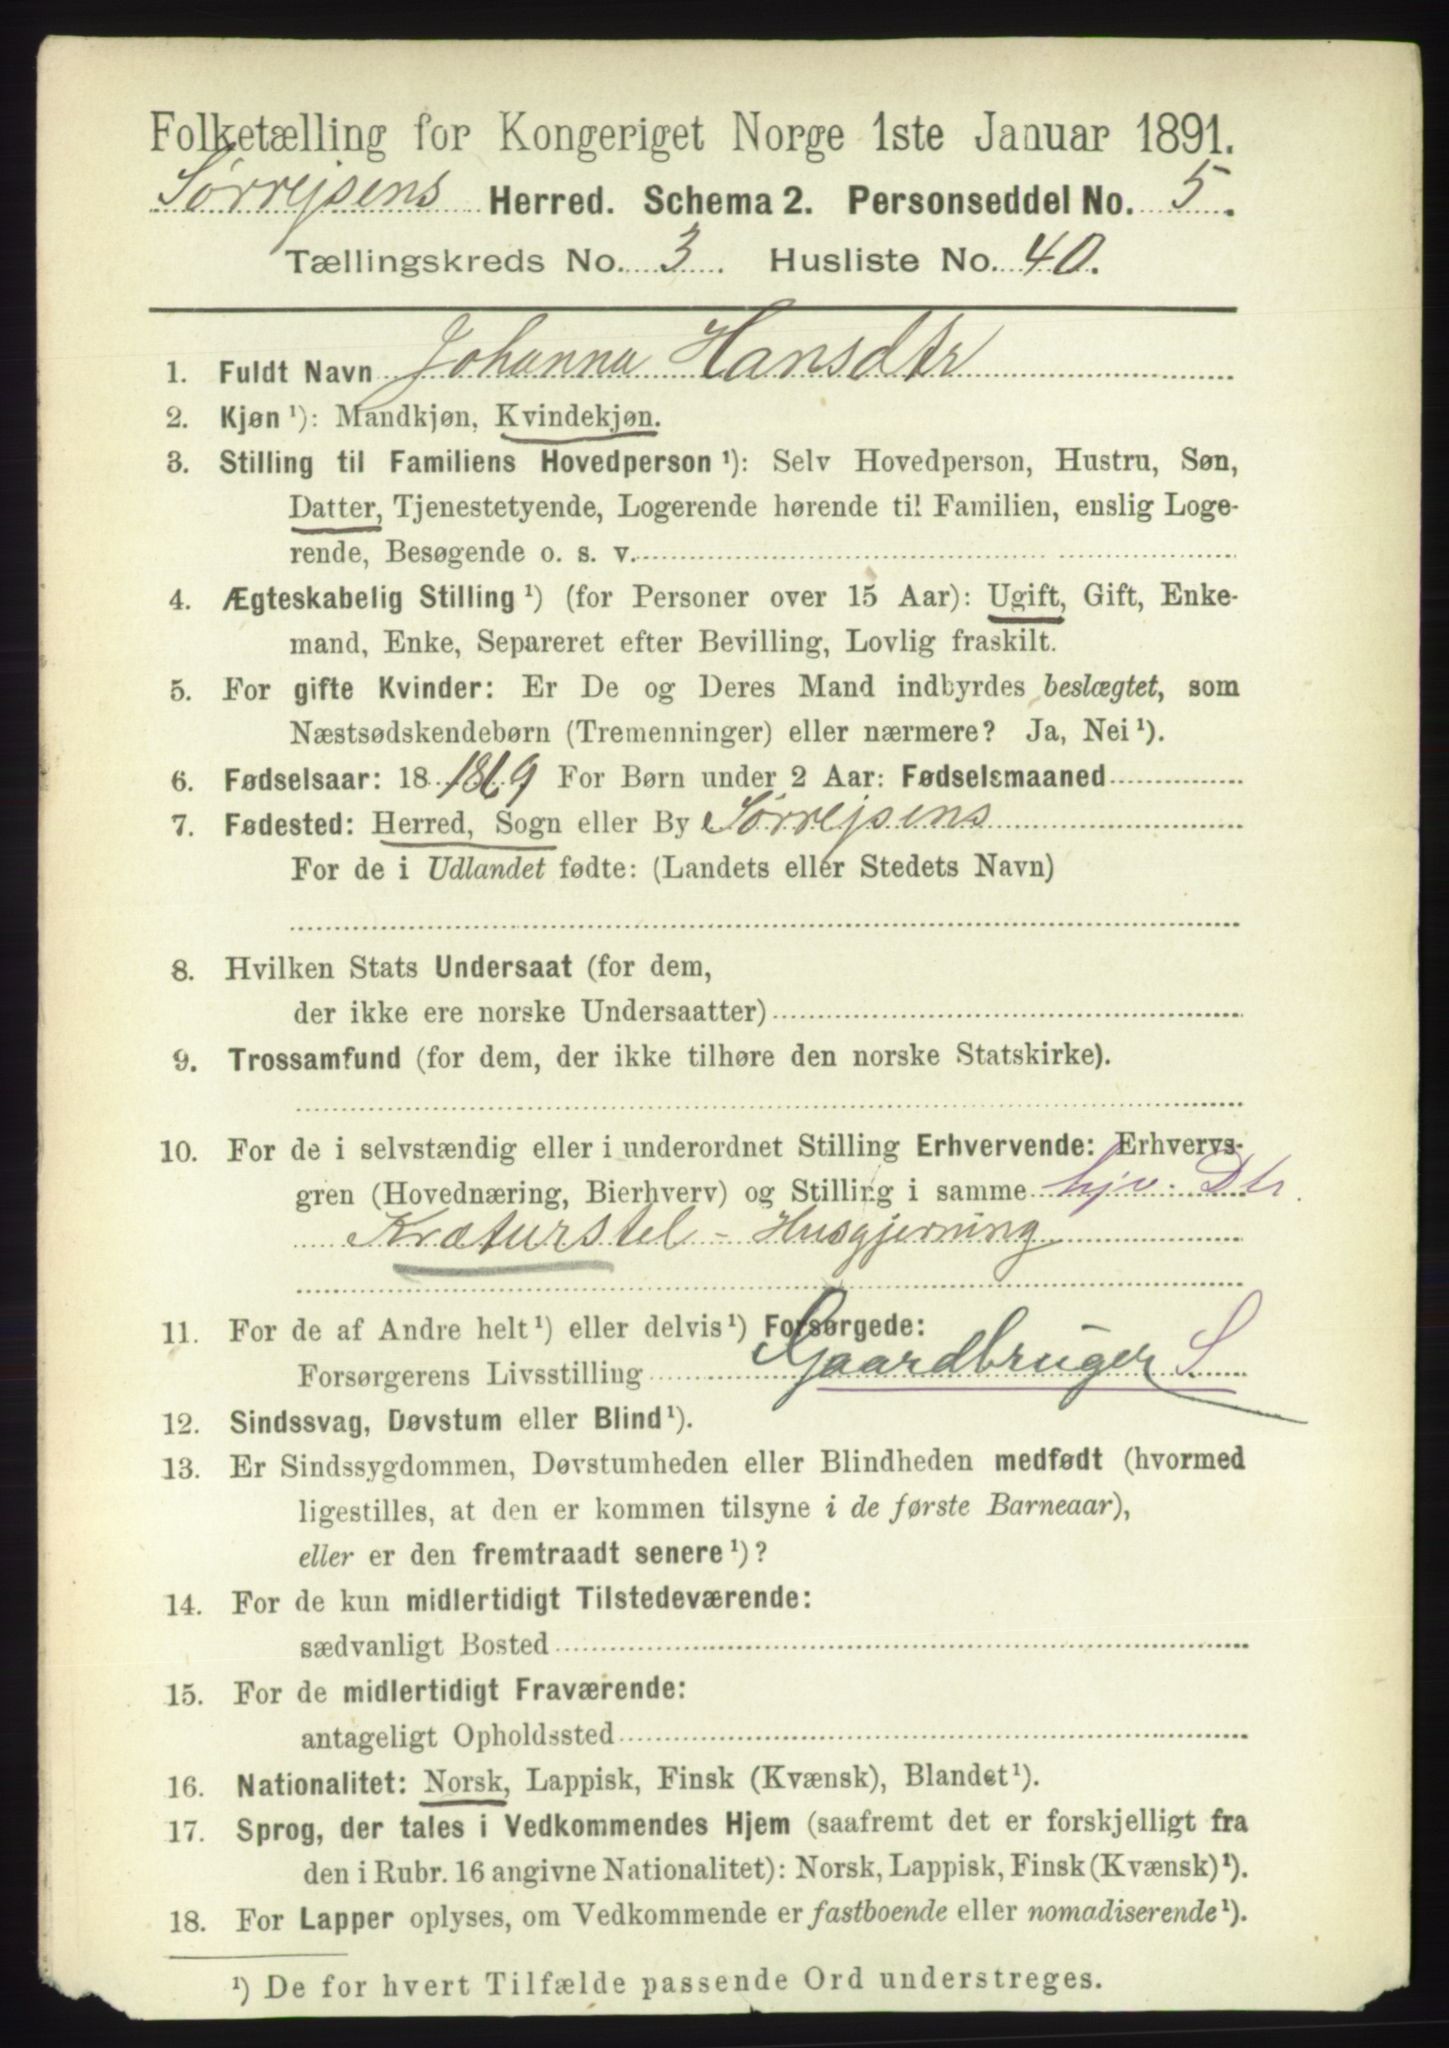 Folketælling for Kongeriget Norge 1ste Januar 1891.
Sørrejsens Herred. Schema 2. Personseddel No. 5.
Tællingskreds No. 3. Husliste No. 40.
1. Fuldt Navn Johanna Hansdtr
2. Kjøn ¹): Mandkjøn, Kvindekjøn.
3. Stilling til Familiens Hovedperson ¹): Selv Hovedperson, Hustru, Søn,
Datter, Tjenestetyende, Logerende hørende til Familien, enslig Loge-
rende, Besøgende o. s. v.
4. Ægteskabelig Stilling ¹) (for Personer over 15 Aar): Ugift, Gift, Enke-
mand, Enke, Separeret efter Bevilling, Lovlig fraskilt.
5. For gifte Kvinder: Er De og Deres Mand indbyrdes beslægtet, som
Næstsødskendebørn (Tremenninger) eller nærmere? Ja, Nei ¹).
6. Fødselsaar: 18 1869 For Børn under 2 Aar: Fødselsmaaned
7. Fødested: Herred, Sogn eller By Sørrejsens
For de i Udlandet fødte: (Landets eller Stedets Navn)
8. Hvilken Stats Undersaat (for dem,
der ikke ere norske Undersaatter)
9. Trossamfund (for dem, der ikke tilhøre den norske Statskirke).
10. For de i selvstændig eller i underordnet Stilling Erhvervende: Erhvervs-
gren (Hovednæring, Bierhverv) og Stilling i samme hjv. Dtr.
Kræturstel - Husgjerning
11. For de af Andre helt ¹) eller delvis ¹) Forsørgede:
Forsørgerens Livsstilling Gaardbruger S
12. Sindssvag, Døvstum eller Blind ¹).
13. Er Sindssygdommen, Døvstumheden eller Blindheden medfødt (hvormed
ligestilles, at den er kommen tilsyne i de første Barneaar),
eller er den fremtraadt senere ¹)?
14. For de kun midlertidigt Tilstedeværende:
sædvanligt Bosted
15. For de midlertidigt Fraværende:
antageligt Opholdssted
16. Nationalitet: Norsk, Lappisk, Finsk (Kvænsk), Blandet ¹).
17. Sprog, der tales i Vedkommendes Hjem (saafremt det er forskjelligt fra
den i Rubr. 16 angivne Nationalitet): Norsk, Lappisk, Finsk (Kvænsk) ¹).
18. For Lapper oplyses, om Vedkommende er fastboende eller nomadiserende ¹).
¹) De for hvert Tilfælde passende Ord understreges.